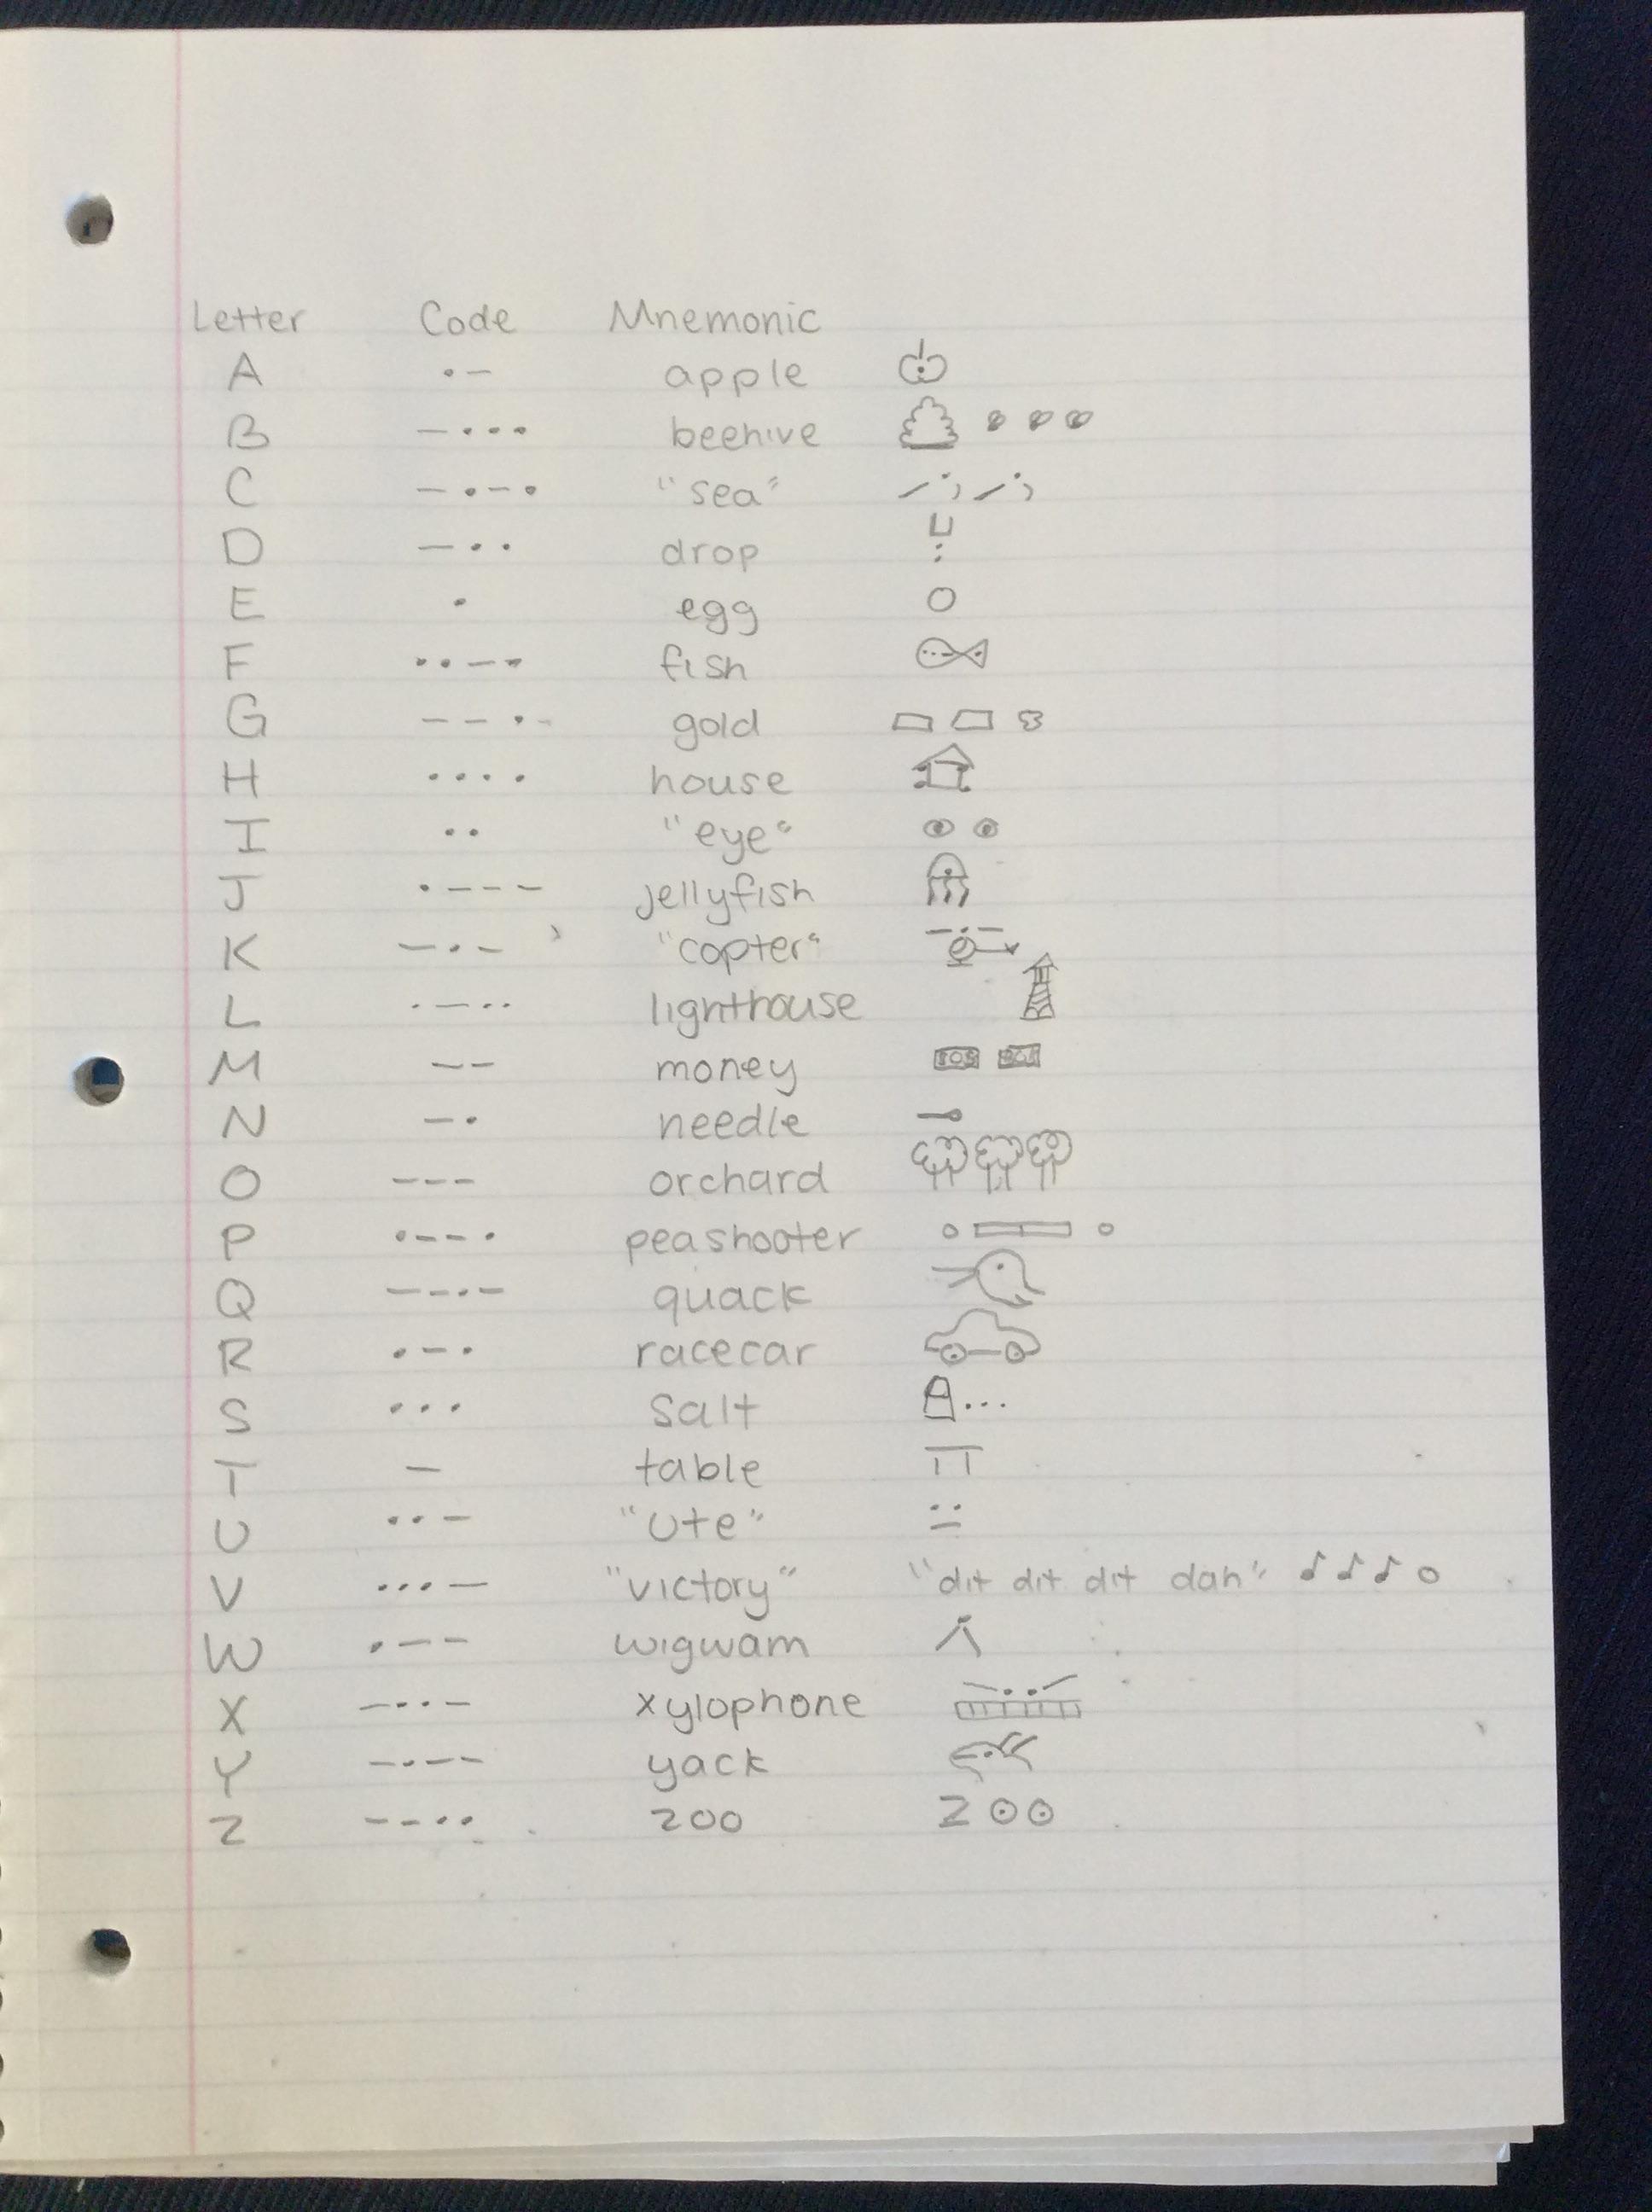 Letter Code Mnemonic
A •– apple
B –••• beehive
C –•–• "sea"
D –•• drop
E • egg
F ••–- fish
G ––•- gold
H •••• house
I •• "eye"
J •––– jellyfish
K –•– "copter"
L •–•• lighthouse
M –– money
N –• needle
O ––– orchard
P •––• peashooter
Q ––•– quack
R •–• racecar
S ••• salt
T – table
U ••– "Ute"
V •••– "victory" "dit dit dit dah"
W •–– wigwam
X –••– xylophone
Y –•–– yack
Z ––•• zoo ZOO